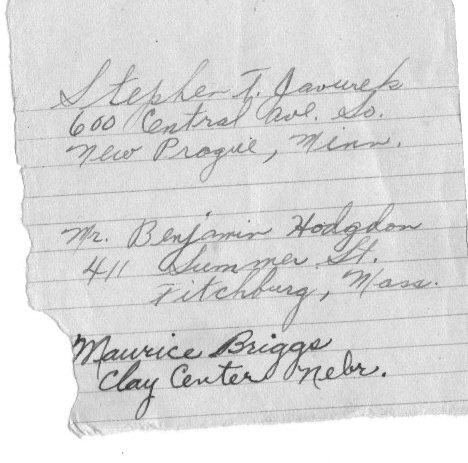 Stephen T. Javurek
600 Central Ave. So.
New Prague, Minn.
Mr. Benjamin Hodgdon
411 Summer St.
Fitchburg, Mass.
Maurice Briggs
Clay Center Nebr.